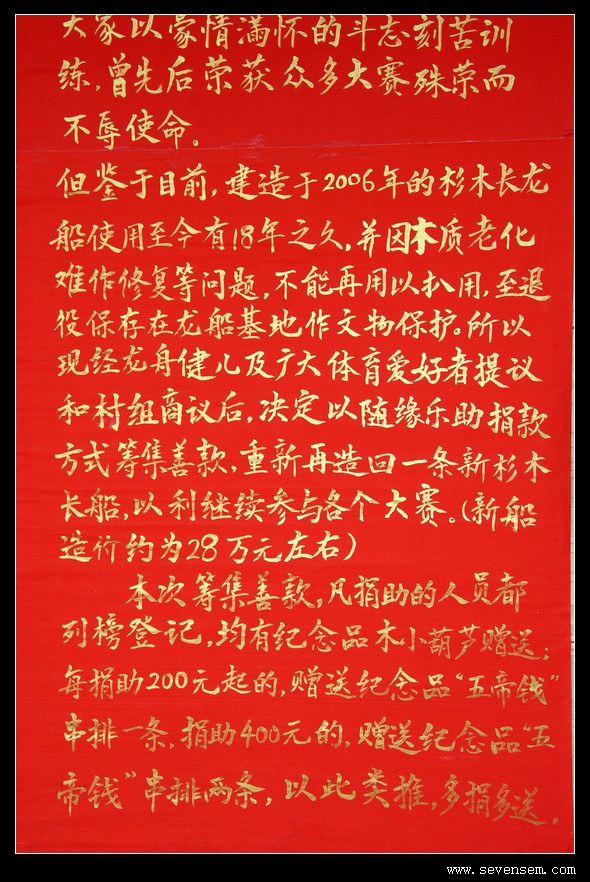 大家以豪情满怀的斗志刻苦训
练,曾先后荣获众多大赛殊荣而
不辱使命。
但鉴于目前,建造于2006年的杉木长龙
船使用至今有18年之久,并因木质老化
难作修复等问题,不能再用以扒用,至退
役保存在龙船基地作文物保护。所以
现经龙舟健儿及广大体育爱好者提议
和村组商议后,决定以随缘乐助捐款
方式筹集善款,重新再造回一条新杉木
长船,以利继续参与各个大赛。(新船
造价约为28万元左右)
本次筹集善款,凡捐助的人员都
列榜登记,均有纪念品木小葫芦赠送;
每捐助200元起的,赠送纪念品“五帝钱”
串排一条,捐助400元的,赠送纪念品“五
帝钱”串排两条,以此类推,多捐多送。
www.sevensem.com